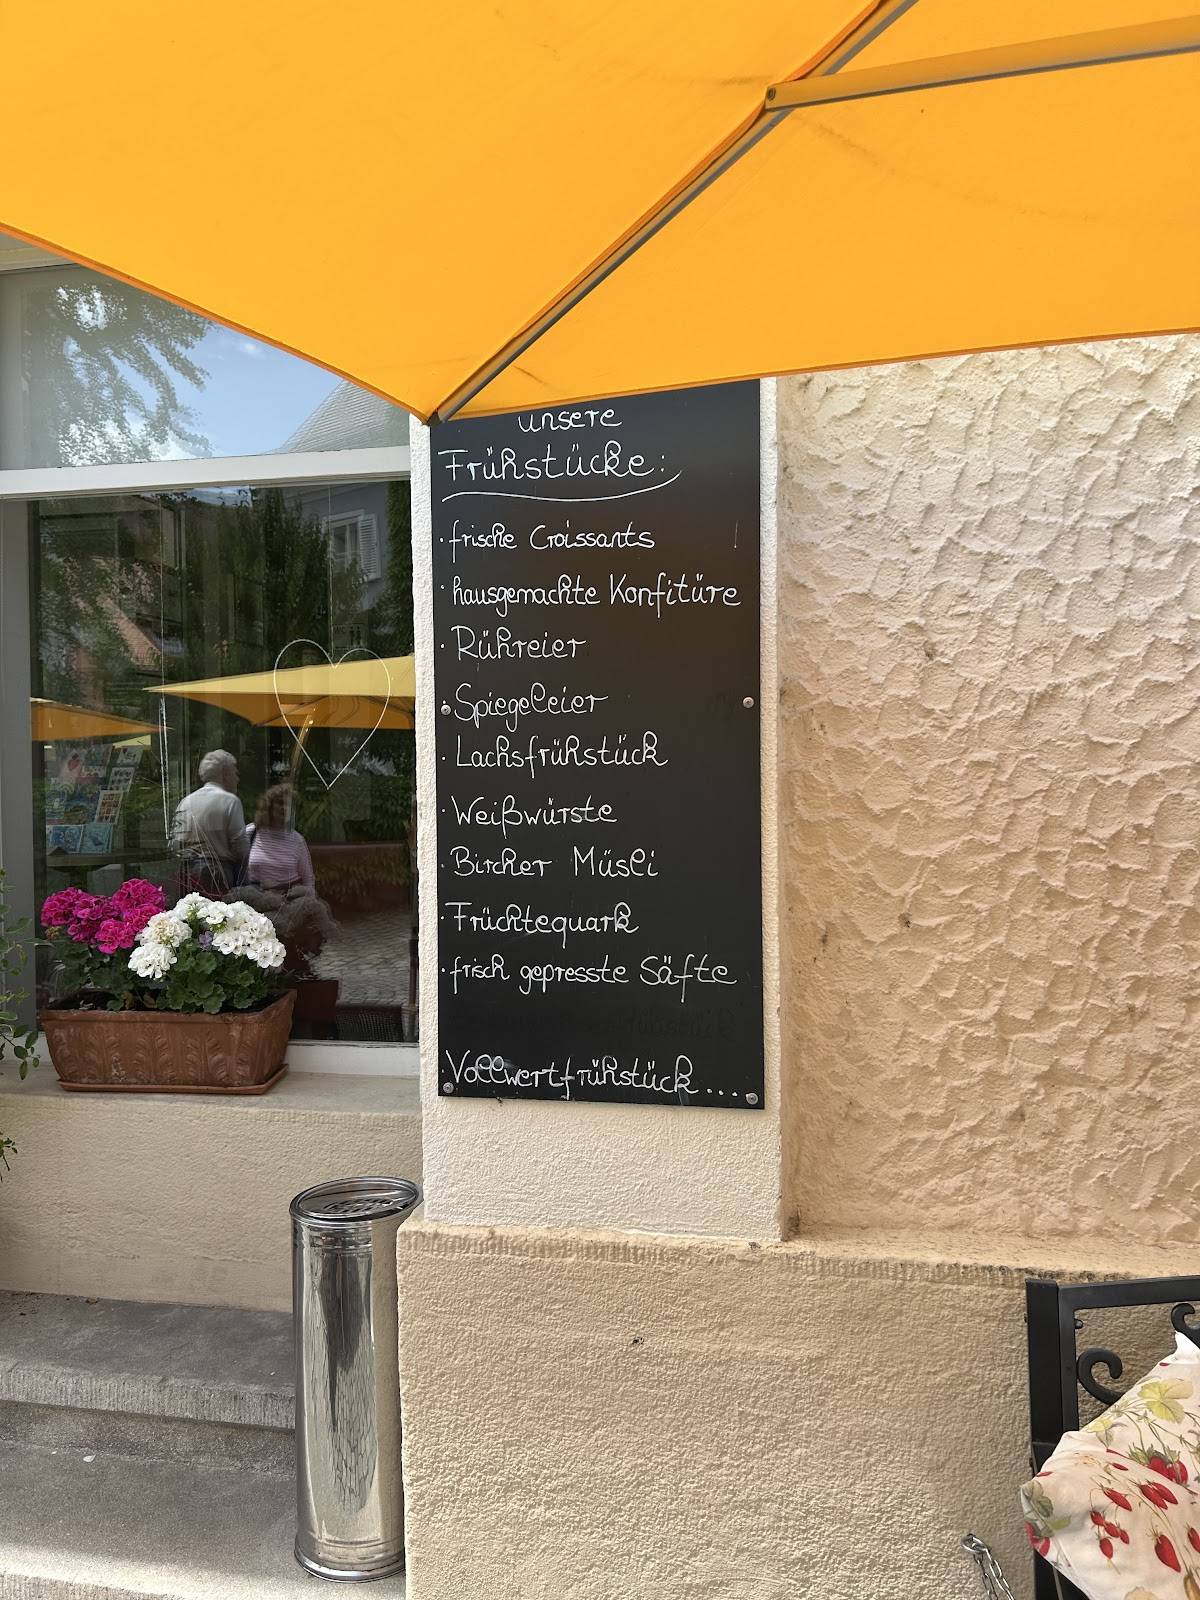 unsere
Frühstücke:
· frische Croissants
· hausgemachte Konfitüre
· Rühreier
· Spiegeleier
· Lachsfrühstück
· Weißwürste
· Bircher Müsli
· Früchtequark
· frisch gepresste Säfte
Vollwertfrühstück...